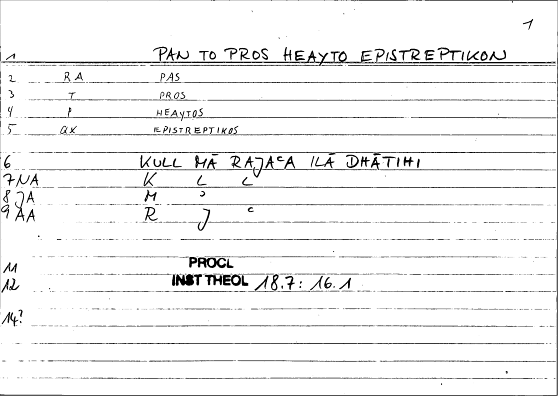 1
1 PAN TO PROS HEAYTO EPISTREPTIKON
2 RA PAS
3 T PROS
4 P HEAYTOS
5 QX EPISTREPTIKOS
6 KULL MĀ RAJAᶜA ILĀ DHĀTIHI
7 NA K L L
8 JA M ɔ
9 AA R J c
11 PROCL
12 INST THEOL 18.7: 16.1
14?